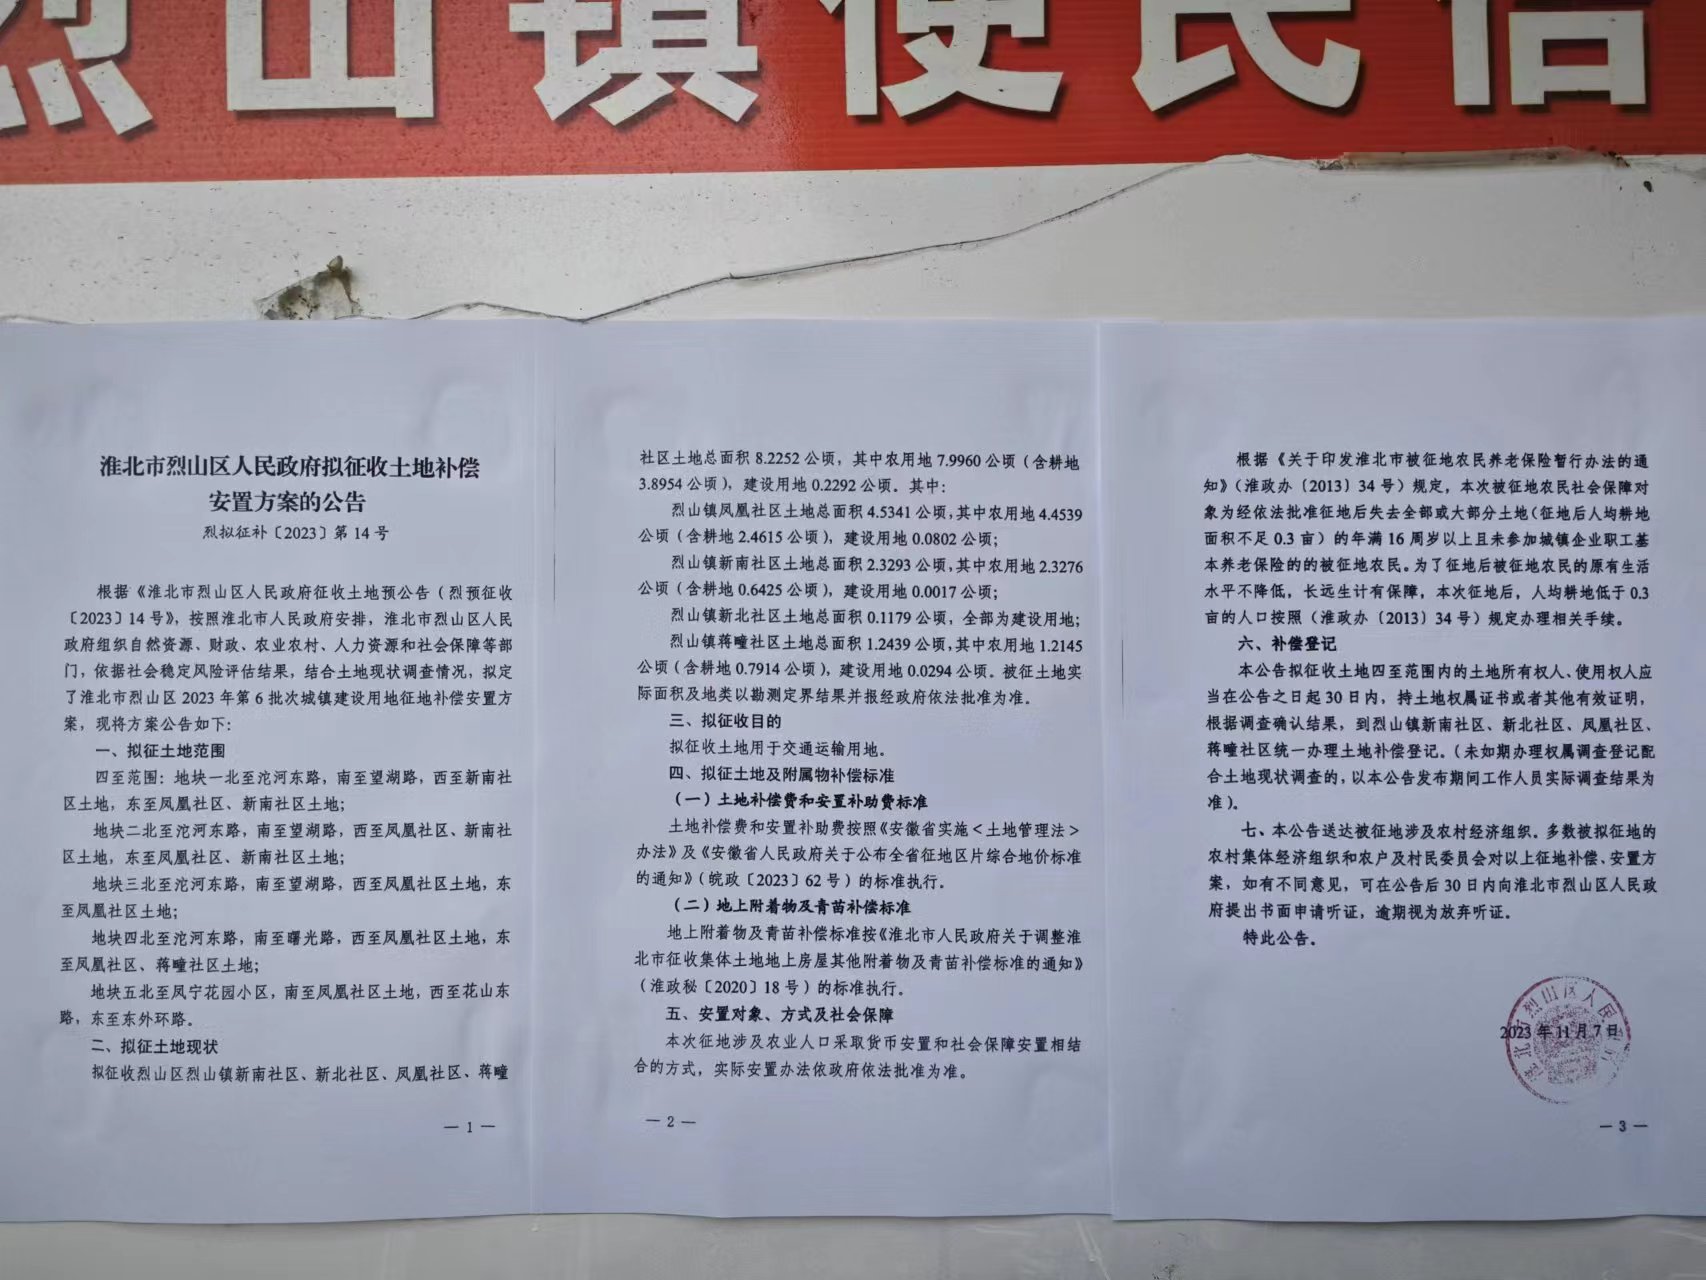 烈山镇便民信
淮北市烈山区人民政府拟征收土地补偿
安置方案的公告
烈拟征补〔2023〕第14号
根据《淮北市烈山区人民政府征收土地预公告（烈预征收
〔2023〕14号》，按照淮北市人民政府安排，淮北市烈山区人民
政府组织自然资源、财政、农业农村、人力资源和社会保障等部
门，依据社会稳定风险评估结果，结合土地现状调查情况，拟定
了淮北市烈山区2023年第6批次城镇建设用地征地补偿安置方
案，现将方案公告如下：
一、拟征土地范围
四至范围：地块一北至沱河东路，南至望湖路，西至新南社
区土地，东至凤凰社区、新南社区土地；
地块二北至沱河东路，南至望湖路，西至凤凰社区、新南社
区土地，东至凤凰社区、新南社区土地；
地块三北至沱河东路，南至望湖路，西至凤凰社区土地，东
至凤凰社区土地；
地块四北至沱河东路，南至曙光路，西至凤凰社区土地，东
至凤凰社区、蒋疃社区土地；
地块五北至凤宁花园小区，南至凤凰社区土地，西至花山东
路，东至东外环路。
二、拟征土地现状
拟征收烈山区烈山镇新南社区、新北社区、凤凰社区、蒋疃
— 1 —
社区土地总面积8.2252公顷，其中农用地7.9960公顷（含耕地
3.8954公顷），建设用地0.2292公顷。其中：
烈山镇凤凰社区土地总面积4.5341公顷，其中农用地4.4539
公顷（含耕地2.4615公顷），建设用地0.0802公顷；
烈山镇新南社区土地总面积2.3293公顷，其中农用地2.3276
公顷（含耕地0.6425公顷），建设用地0.0017公顷；
烈山镇新北社区土地总面积0.1179公顷，全部为建设用地；
烈山镇蒋疃社区土地总面积1.2439公顷，其中农用地1.2145
公顷（含耕地0.7914公顷），建设用地0.0294公顷。被征土地实
际面积及地类以勘测定界结果并报经政府依法批准为准。
三、拟征收目的
拟征收土地用于交通运输用地。
四、拟征土地及附属物补偿标准
（一）土地补偿费和安置补助费标准
土地补偿费和安置补助费按照《安徽省实施＜土地管理法＞
办法》及《安徽省人民政府关于公布全省征地区片综合地价标准
的通知》（皖政〔2023〕62号）的标准执行。
（二）地上附着物及青苗补偿标准
地上附着物及青苗补偿标准按《淮北市人民政府关于调整淮
北市征收集体土地地上房屋其他附着物及青苗补偿标准的通知》
（淮政秘〔2020〕18号）的标准执行。
五、安置对象、方式及社会保障
本次征地涉及农业人口采取货币安置和社会保障安置相结
合的方式，实际安置办法依政府依法批准为准。
— 2 —
根据《关于印发淮北市被征地农民养老保险暂行办法的通
知》（淮政办〔2013〕34号）规定，本次被征地农民社会保障对
象为经依法批准征地后失去全部或大部分土地（征地后人均耕地
面积不足0.3亩）的年满16周岁以上且未参加城镇企业职工基
本养老保险的的被征地农民。为了征地后被征地农民的原有生活
水平不降低，长远生计有保障，本次征地后，人均耕地低于0.3
亩的人口按照（淮政办〔2013〕34号）规定办理相关手续。
六、补偿登记
本公告拟征收土地四至范围内的土地所有权人、使用权人应
当在公告之日起30日内，持土地权属证书或者其他有效证明，
根据调查确认结果，到烈山镇新南社区、新北社区、凤凰社区、
蒋疃社区统一办理土地补偿登记。（未如期办理权属调查登记配
合土地现状调查的，以本公告发布期间工作人员实际调查结果为
准）。
七、本公告送达被征地涉及农村经济组织。多数被拟征地的
农村集体经济组织和农户及村民委员会对以上征地补偿、安置方
案，如有不同意见，可在公告后30日内向淮北市烈山区人民政
府提出书面申请听证，逾期视为放弃听证。
特此公告。
淮北市烈山区人民政府
2023年11月7日
— 3 —